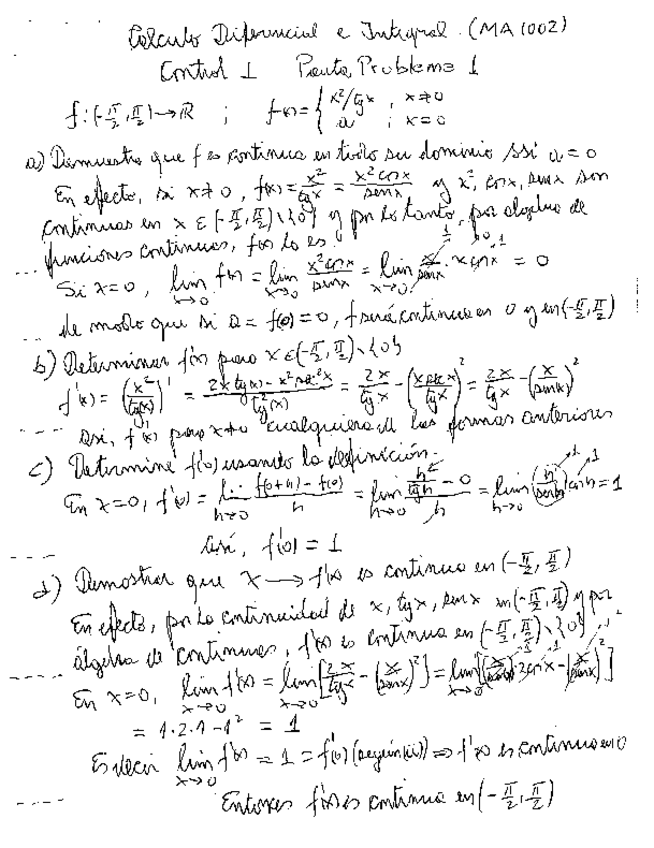 Cálculo Diferencial e Integral. (MA1002)
Control 1 Pauta Problema 1
f: (-π/2, π/2) → ℝ ; f(x) = { x²/tg x , x≠0
a ; x=0
a) Demuestre que f es continua en todo su dominio ssi a = 0
En efecto, si x≠0, f(x) = x²/tg x = x² cos x / sen x y x², cos x, sen x son
continuas en x ∈ (-π/2, π/2) \ {0} y por lo tanto, por algebra de
funciones continuas, f(x) lo es.
Si x=0, lim x→0 f(x) = lim x→0 x² cos x / sen x = lim x→0 x/sen x · x cos x = 0
de modo que si a = f(0) = 0, f será continua en 0 y en (-π/2, π/2)
b) Determinar f'(x) para x ∈ (-π/2, π/2) \ {0}
f'(x) = (x²/tg(x))' = (2x tg(x) - x² sec² x)/tg²(x) = 2x/tg x - (x sec x/tg x)² = 2x/tg x - (x/sen x)²
Así, f'(x) para x≠0 cualquiera de las formas anteriores
c) Determine f'(0) usando la definición.
En x=0, f'(0) = lim h→0 (f(0+h) - f(0))/h = lim h→0 (h²/tg h - 0)/h = lim h→0 (h/sen h) cos h = 1
Así, f'(0) = 1
d) Demostrar que x → f'(x) es continua en (-π/2, π/2)
En efecto, por la continuidad de x, tg x, sen x en (-π/2, π/2) y por
álgebra de continuas, f'(x) es continua en (-π/2, π/2) \ {0}
En x=0, lim x→0 f'(x) = lim x→0 [2x/tg x - (x/sen x)²] = lim x→0 [(x/sen x) 2 cos x - (x/sen x)²]
= 1·2·1 - 1² = 1
Es decir lim x→0 f'(x) = 1 = f'(0) (según (c)) ⇒ f'(x) es continua en 0
Entonces f'(x) es continua en (-π/2, π/2)